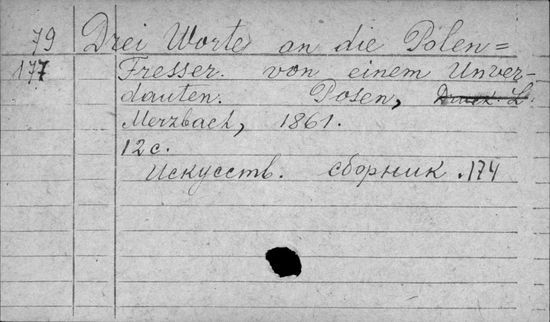 79 Drei Worte an die Polen=
177 Fresser. von einem Unver-
dauten. Posen, Druck. L.
Merzbach, 1861.
12 с.
Искусств. сборник .174